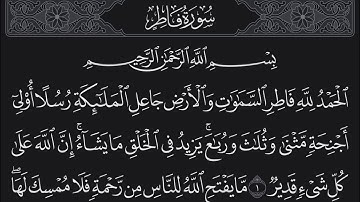 سُورَةُ فَاطِرٍ
بِسْمِ اللَّهِ الرَّحْمَٰنِ الرَّحِيمِ
الْحَمْدُ لِلَّهِ فَاطِرِ السَّمَٰوَٰتِ وَالْأَرْضِ جَاعِلِ الْمَلَٰٓئِكَةِ رُسُلًا أُو۟لِىٓ
أَجْنِحَةٍ مَّثْنَىٰ وَثُلَٰثَ وَرُبَٰعَ ۚ يَزِيدُ فِى الْخَلْقِ مَا يَشَآءُ ۚ إِنَّ اللَّهَ عَلَىٰ
كُلِّ شَىْءٍ قَدِيرٌ ۝١ مَّا يَفْتَحِ اللَّهُ لِلنَّاسِ مِن رَّحْمَةٍ فَلَا مُمْسِكَ لَهَا ۖ